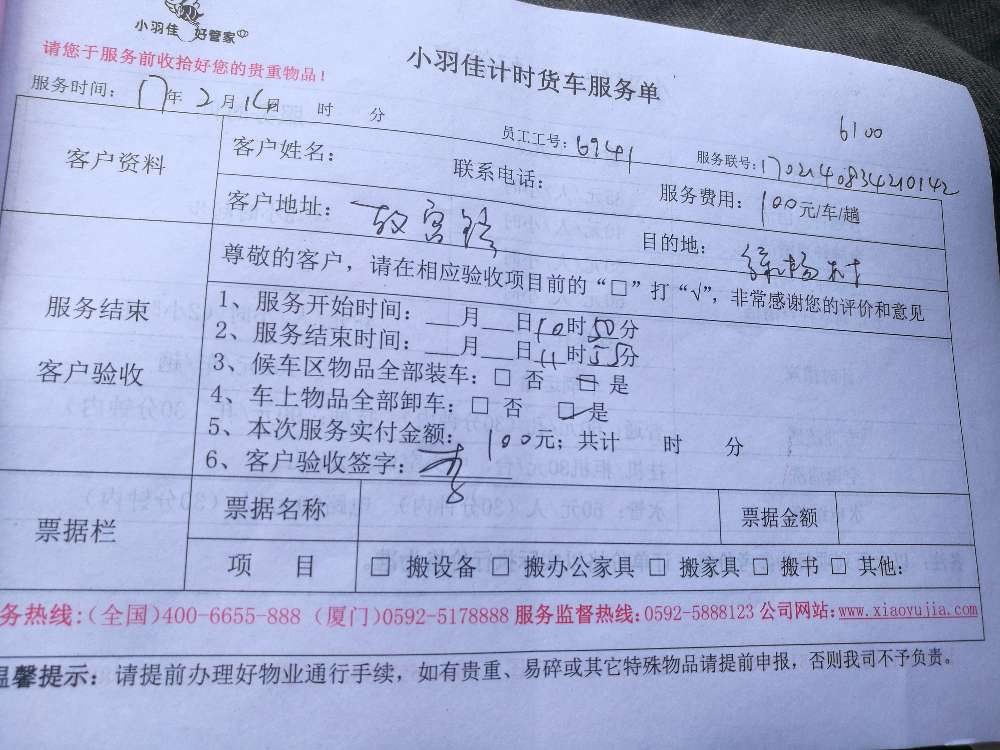 小羽佳 好管家
请您于服务前收拾好您的贵重物品！
小羽佳计时货车服务单
6100
服务时间：17年2月14日 时 分
员工工号：6941 服务联号：1702140834210142
客户资料
客户姓名： 联系电话： 服务费用：100元/车/趟
客户地址：故宫路 目的地：
服务结束
客户验收
尊敬的客户，请在相应验收项目前的“□”打“√”，非常感谢您的评价和意见
1、服务开始时间：__月__日10时50分
2、服务结束时间：__月__日11时55分
3、候车区物品全部装车：□ 否 □ 是
4、车上物品全部卸车：□ 否 ☑ 是
5、本次服务实付金额：100元；共计 时 分
6、客户验收签字：李
票据栏
票据名称 票据金额
项 目 □ 搬设备 □ 搬办公家具 □ 搬家具 □ 搬书 □ 其他：
务热线：(全国)400-6655-888 (厦门)0592-5178888 服务监督热线：0592-5888123 公司网站：www.xiaoyujia.com
温馨提示：请提前办理好物业通行手续，如有贵重、易碎或其它特殊物品请提前申报，否则我司不予负责。